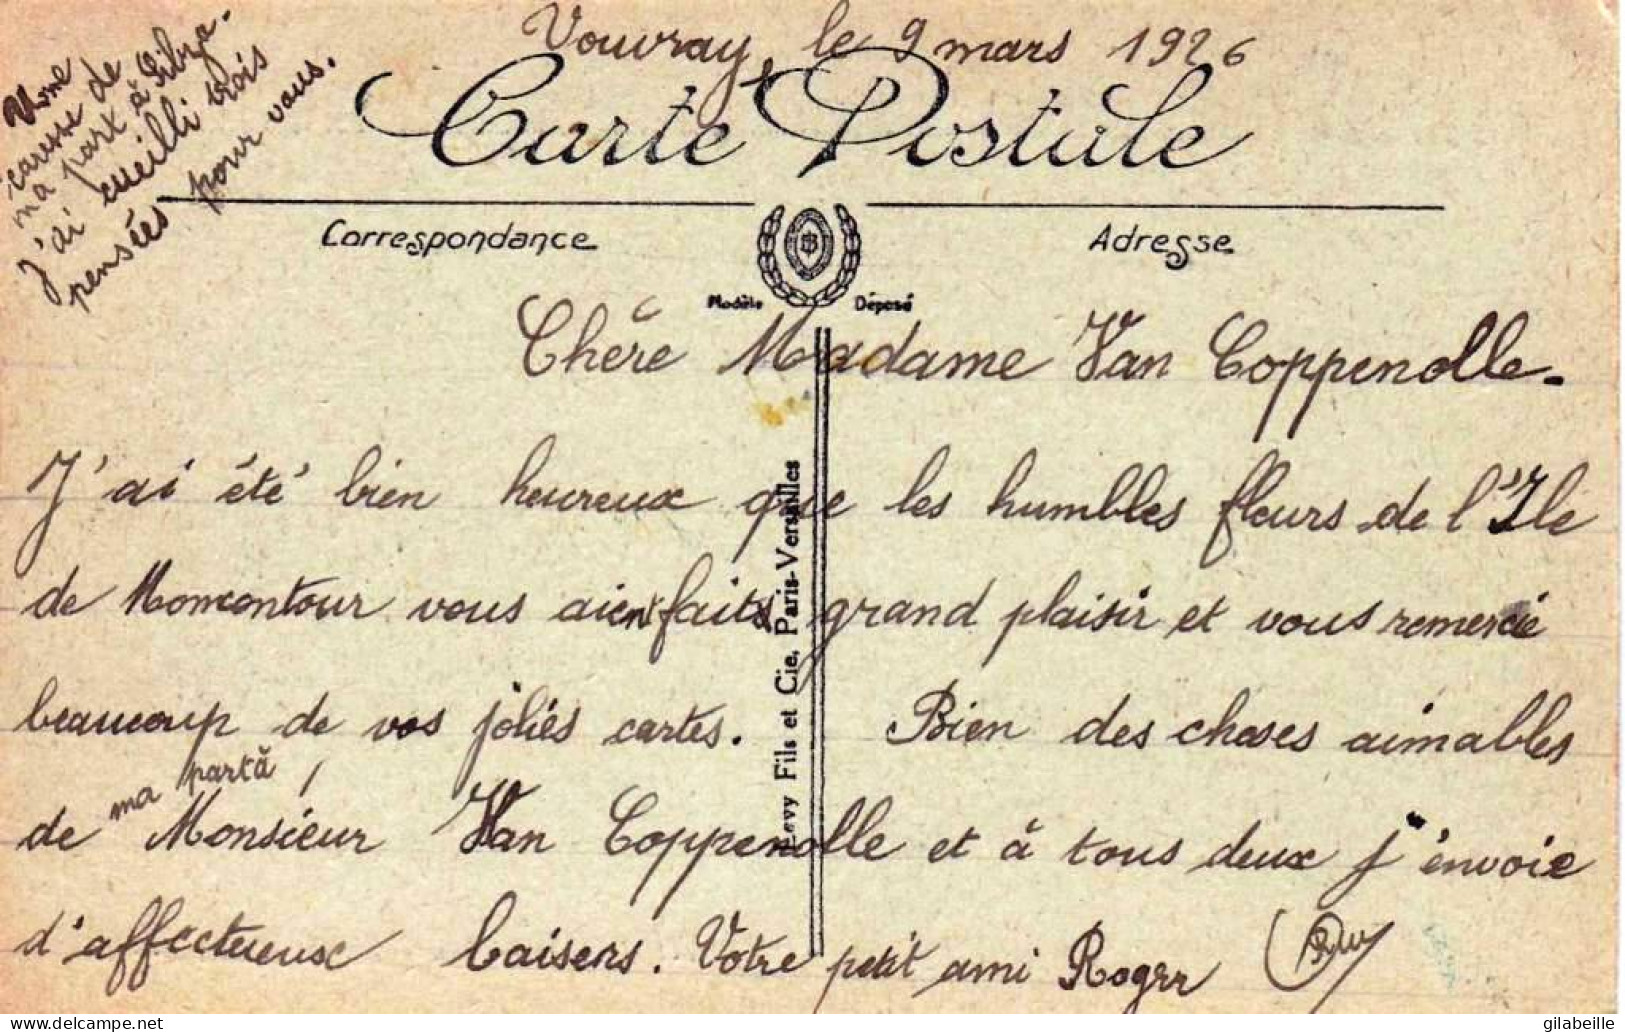 Vouvray, le 9 mars 1926
Carte Postale
caresse de
ma part à
J'ai cueilli trois
pensées pour vous.
Correspondance
Adresse
Modèle Déposé
Chère Madame Van Coppenolle.
J'ai été bien heureux que les humbles fleurs de l'Ile
de Momcontour vous aient faits grand plaisir et vous remercie
beaucoup de vos joliés cartes. Bien des choses aimables
ma part à
de Monsieur Van Coppenolle et à tous deux j'envoie
d'affectueux baisers. Votre petit ami Roger
Levy Fils et Cie, Paris-Versailles
delcampe.net
gilabeille